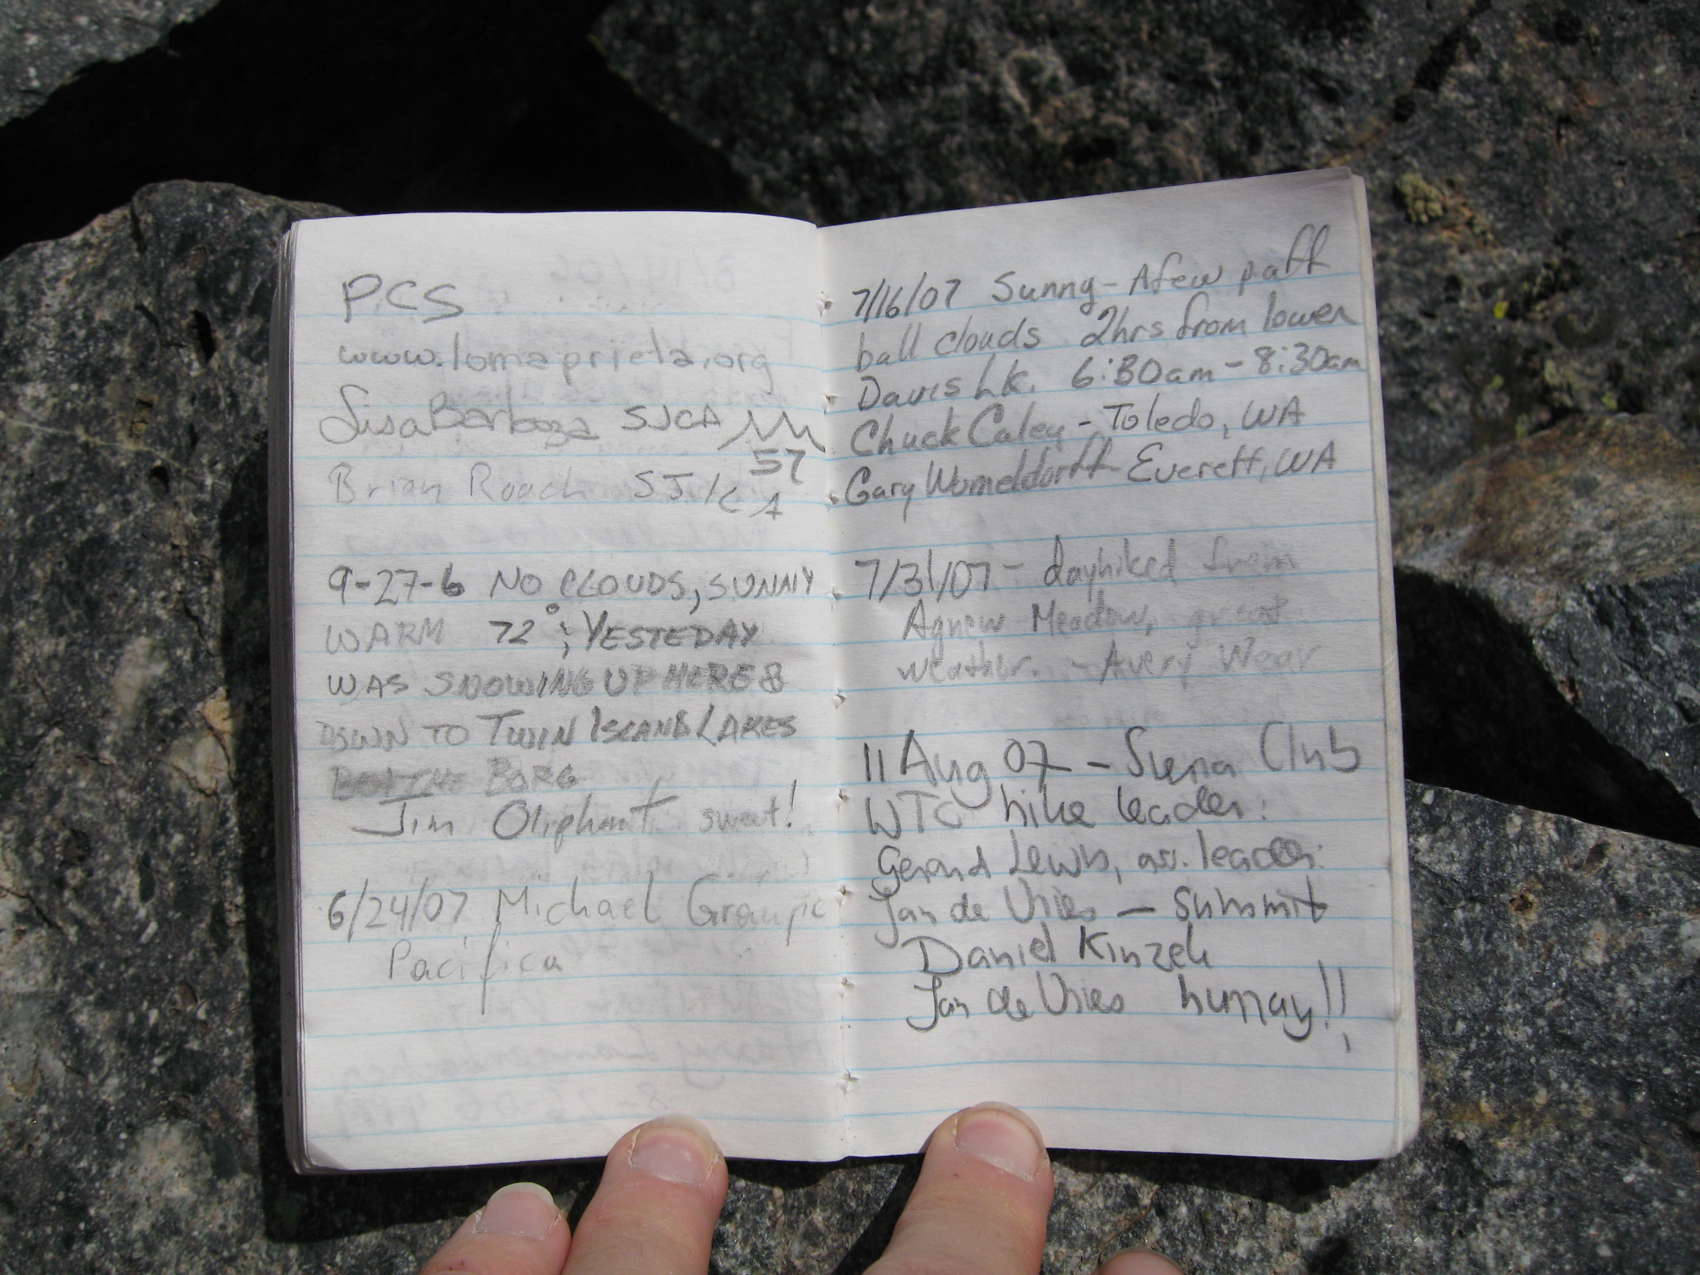 PCS
www.lomaprieta.org
Lisa Barboza SJCA
57
Brian Roach SJ/CA
9-27-6 NO CLOUDS, SUNNY
WARM 72°; YESTEDAY
WAS SNOWING UP HERE &
DOWN TO TWIN ISLAND LAKES
BORG
Jim Oliphant sweet!
6/24/07 Michael
Pacifica
7/16/07 Sunny - A few puff
ball clouds 2hrs from lower
Davis Lk. 6:30am - 8:30am
Chuck Caley - Toledo, WA
Gary Womeldorff Everett, WA
7/31/07 - dayhiked from
Agnew Meadow, great
weather. - Avery Wear
11 Aug 07 - Sierra Club
WTC hike leader:
Gerard Lewis, ass. leader:
Jan de Vries - Summit
Daniel Kinzek
Jan de Vries hurray!!